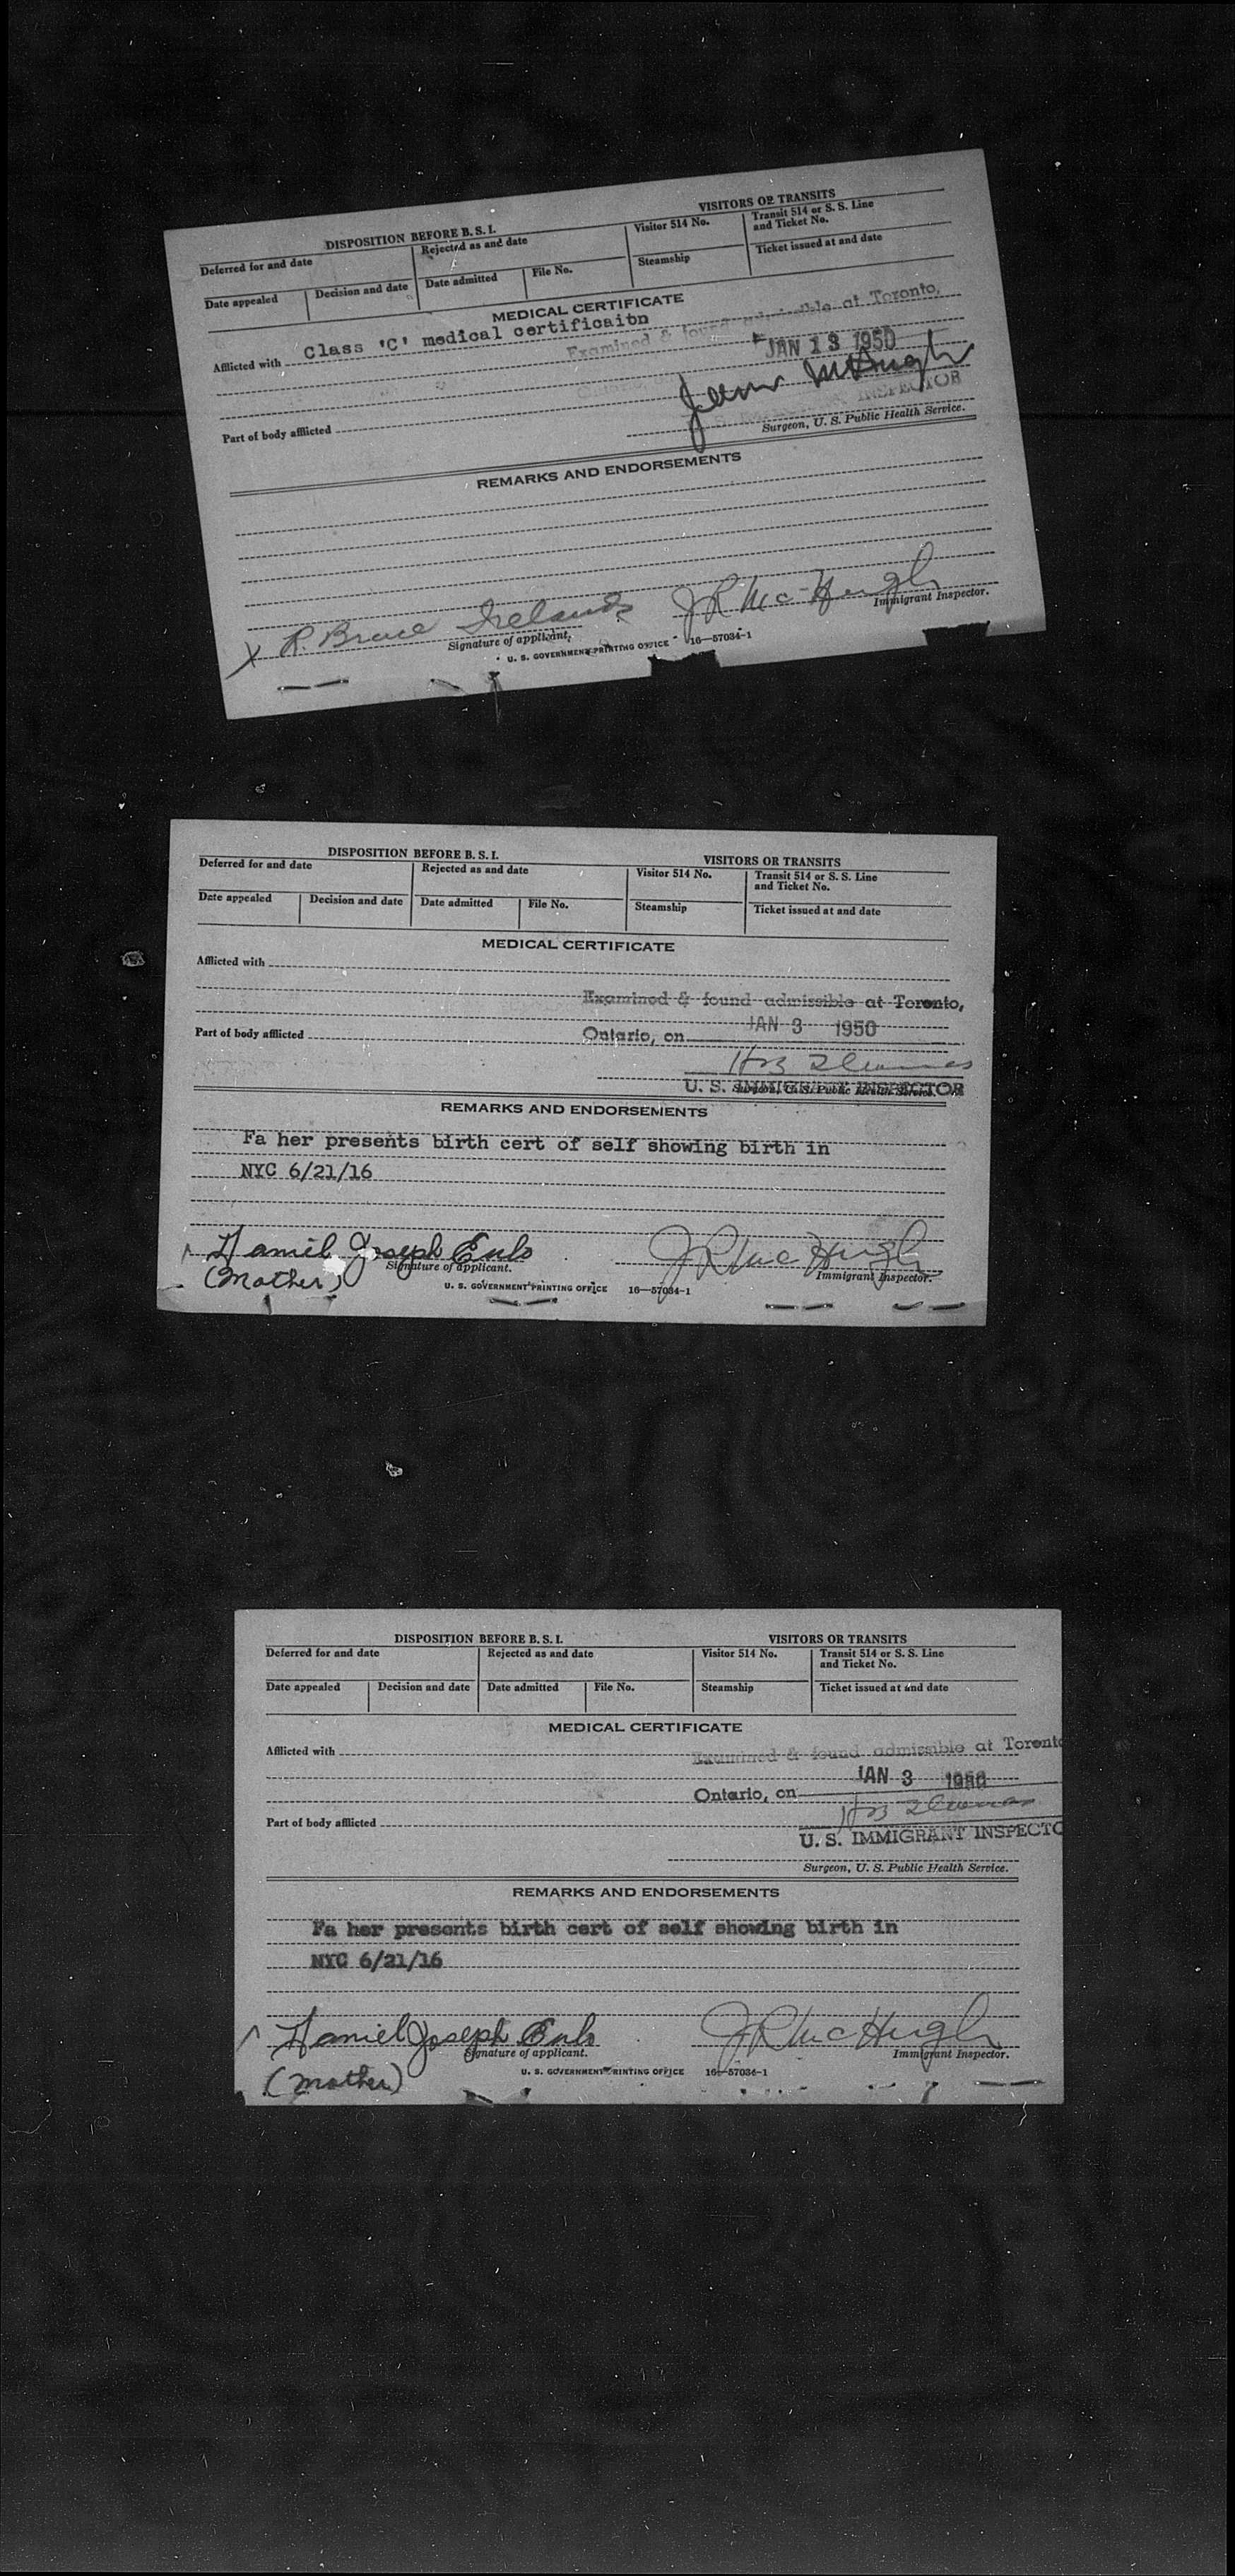 DISPOSITION BEFORE B. S. I.
VISITORS OR TRANSITS
Deferred for and date
Rejected as and date
Visitor 514 No.
Transit 514 or S. S. Line
and Ticket No.
Date appealed
Decision and date
Date admitted
File No.
Steamship
Ticket issued at and date
MEDICAL CERTIFICATE
Afflicted with Class 'C' medical certificaitbn
Examined & found admissible at Toronto,
JAN 13 1950
INSPECTOR
Part of body afflicted
Surgeon, U. S. Public Health Service.
REMARKS AND ENDORSEMENTS
X R. Bruce Ireland J R McHugh
Signature of applicant.
Immigrant Inspector.
U. S. GOVERNMENT PRINTING OFFICE 16—57034-1
DISPOSITION BEFORE B. S. I.
VISITORS OR TRANSITS
Deferred for and date
Rejected as and date
Visitor 514 No.
Transit 514 or S. S. Line
and Ticket No.
Date appealed
Decision and date
Date admitted
File No.
Steamship
Ticket issued at and date
MEDICAL CERTIFICATE
Afflicted with
Examined & found admissible at Toronto,
Part of body afflicted
Ontario, on JAN 3 1950
U. S. IMMIGRANT INSPECTOR
Surgeon, U. S. Public Health Service.
REMARKS AND ENDORSEMENTS
Fa her presents birth cert of self showing birth in
NYC 6/21/16
Joseph J R McHugh
Signature of applicant.
(Mother)
Immigrant Inspector.
U. S. GOVERNMENT PRINTING OFFICE 16—57034-1
DISPOSITION BEFORE B. S. I.
VISITORS OR TRANSITS
Deferred for and date
Rejected as and date
Visitor 514 No.
Transit 514 or S. S. Line
and Ticket No.
Date appealed
Decision and date
Date admitted
File No.
Steamship
Ticket issued at and date
MEDICAL CERTIFICATE
Afflicted with
Examined & found admissible at Toronto
JAN 3 1950
Ontario, on
Part of body afflicted
U. S. IMMIGRANT INSPECTO
Surgeon, U. S. Public Health Service.
REMARKS AND ENDORSEMENTS
Fa her presents birth cert of self showing birth in
NYC 6/21/16
Joseph J R McHugh
Signature of applicant.
Immigrant Inspector.
(Mother)
U. S. GOVERNMENT PRINTING OFFICE 16—57034-1